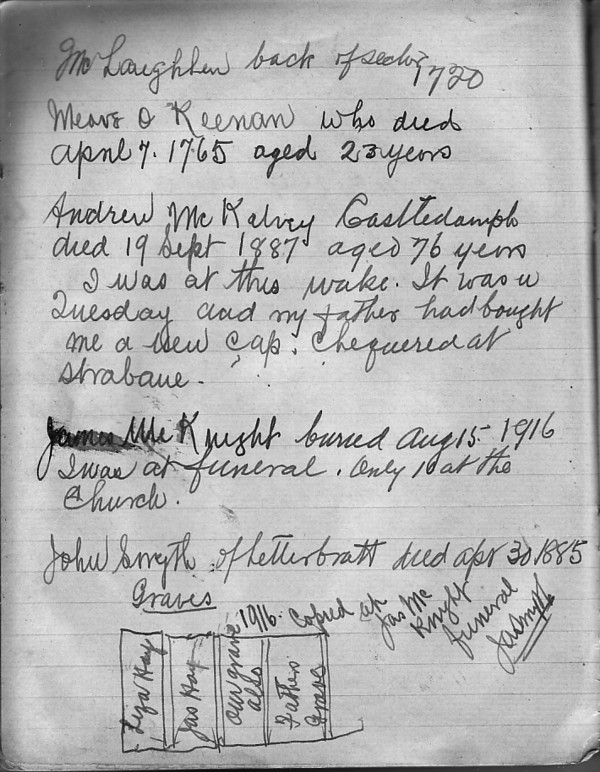 McLaughlen back of 1720
Mears O Keenan who died
April 7. 1765 aged 23 years
Andrew McKelvey Castledamph
died 19 Sept 1887 aged 76 years
I was at this wake. It was a
Tuesday and my father had bought
me a new cap. Chequered at
Strabane.
James McKnight buried Aug 15 1916
I was at funeral. Only 10 at the
Church.
John Smyth of Letterbratt died Apr 30 1885
Graves
1916. Copied at
Jas Mc
Knight
funeral
Liza Hay
Jas Hay
Our grave
also
Fathers
Grave